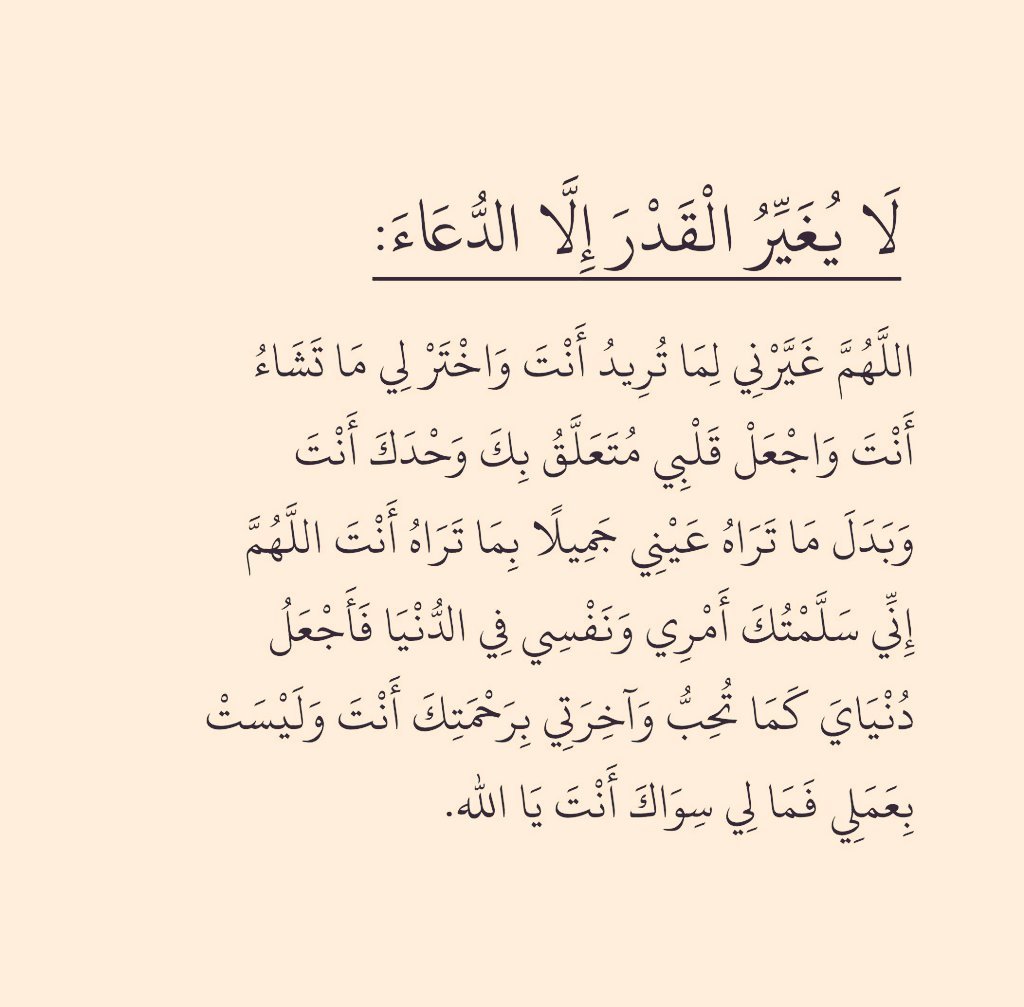 لَا يُغَيِّرُ الْقَدْرَ إِلَّا الدُّعَاءَ:
اللَّهُمَّ غَيَّرْنِي لِمَا تُرِيدُ أَنْتَ وَاخْتَرْ لِي مَا تَشَاءُ
أَنْتَ وَاجْعَلْ قَلْبِي مُتَعَلَّقُ بِكَ وَحْدَكَ أَنْتَ
وَبَدَلَ مَا تَرَاهُ عَيْنِي جَمِيلًا بِمَا تَرَاهُ أَنْتَ اللَّهُمَّ
إِنِّي سَلَّمْتُكَ أَمْرِي وَنَفْسِي فِي الدُّنْيَا فَأَجْعَلُ
دُنْيَايَ كَمَا تُحِبُّ وَآخِرَتِي بِرَحْمَتِكَ أَنْتَ وَلَيْسَتْ
بِعَمَلِي فَمَا لِي سِوَاكَ أَنْتَ يَا الله.